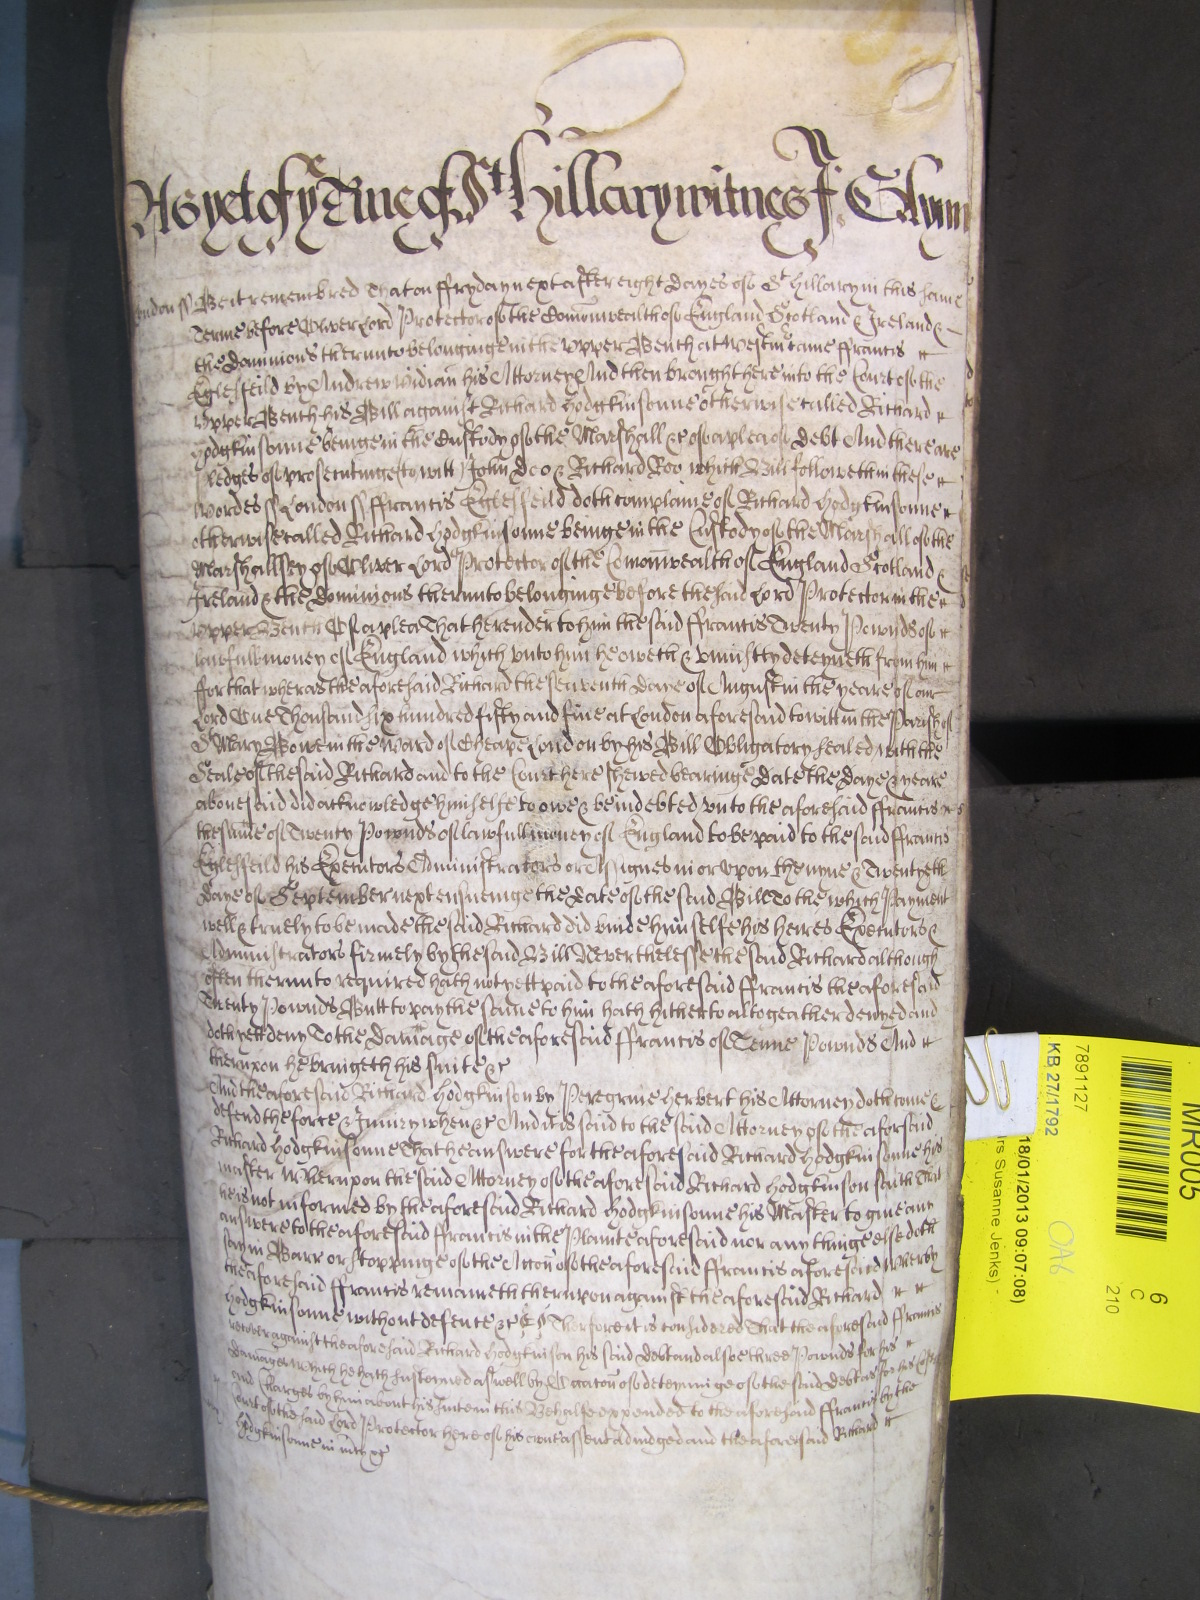 As yet of ye Time of St Hillary witnes J Glynn
London ss Be it remembred That on ffryday next after eight dayes of St Hillary in this same
Terme before Oliver Lord Protector of the Comonwealth of England Scotland & Ireland &
the Dominions therunto belonginge in the Upper Bench at Westmr came ffrancis
Eglesfeild by Andrew Vidian his Attorney And then brought here into the Court of the
Upper Bench his Bill against Richard Hodgkinsonne otherwise called Richard
Hodgkinsonne beinge in the Custody of the Marshall &c of a plea of Debt And there are
pledges of prosecutinge (to witt) John Doo & Richard Roo which Bill followeth in these
wordes ss London ss ffrancis Eglesfeild doth complaine of Richard Hodgkinsonne
otherwise called Richard Hodgkinsonne beinge in the Custody of the Marshall of the
Marshallsey of Oliver Lord Protector of the Comonwealth of England Scotland &
Ireland & the Dominions therunto belonginge before the said Lord Protector in the
Upper Bench Of a plea That he render to him the said ffrancis Twenty Pownds of
lawfull money of England which unto him he oweth & uniustly deteyneth from him
ffor that wheras the aforesaid Richard the seaventh Daye of August in the yeare of our
Lord One Thousand six hundred fifty and five at London aforesaid to witt in the Parish of
St Mary Bowe in the Ward of Cheape London by his Bill Obligatory sealed with the
Seale of the said Richard and to the Court here shewed bearinge date the Daye & yeare
abovesaid did acknowledge himselfe to owe & be indebted unto the aforesaid ffrancis
the sume of Twenty Pownds of lawfull money of England to be paid to the said ffrancis
Eglesfeild his Executors Administrators or Assignes in or upon the nyne & Twentyeth
daye of September next ensueinge the date of the said Bill To the which Payment
well & truely to be made the said Richard did binde himselfe his heires Executors &
Administrators firmely by the said Bill Neverthelesse the said Richard although
often therunto required hath not yett paid to the aforesaid ffrancis the aforesaid
Twenty Pownds Butt to pay the same to him hath hitherto altogeather denyed and
doth yett deny To the Damage of the aforesaid ffrancis of Tenne Pownds And
therupon he bringeth his suite &c
And the aforesaid Richard Hodgkinson by Peregrine Herbert his Attorney doth come &
defend the force & Iniury when &c And it is said to the said Attorney of the aforsaid
Richard Hodgkinsonne That he answere for the aforesaid Richard Hodgkinsonne his
master Wherupon the said Attorney of the aforesaid Richard Hodgkinson saith That
he is not informed by the aforesaid Richard Hodgkinsonne his Master to give any
answere to the aforesaid ffrancis in the Plainte aforesaid nor any thinge else doth
say in Barr or stoppinge of the Accon of the aforesaid ffrancis aforesaid Wherby
the aforesaid ffrancis remaineth therupon against the aforesaid Richard
Hodgkinsonne without defence &c Therfore it is considered That the aforesaid ffrancis
recover against the aforesaid Richard Hodgkinson his said Debt and alsoe three Pownds for his
damages which he hath susteined aswell by Occacon of deteininge of the said Debt as for his Costs
and Charges by him about his suite in this Behalfe expended to the aforesaid ffrancis by the
Court of the said Lord Protector here of his owne assent adiudged and the aforesaid Richard
Hodgkinsonne in mcy &c
MR005
7891127
KB 27/1792
18/01/2013 09:07:08)
rs Susanne Jenks) -
6
C
210